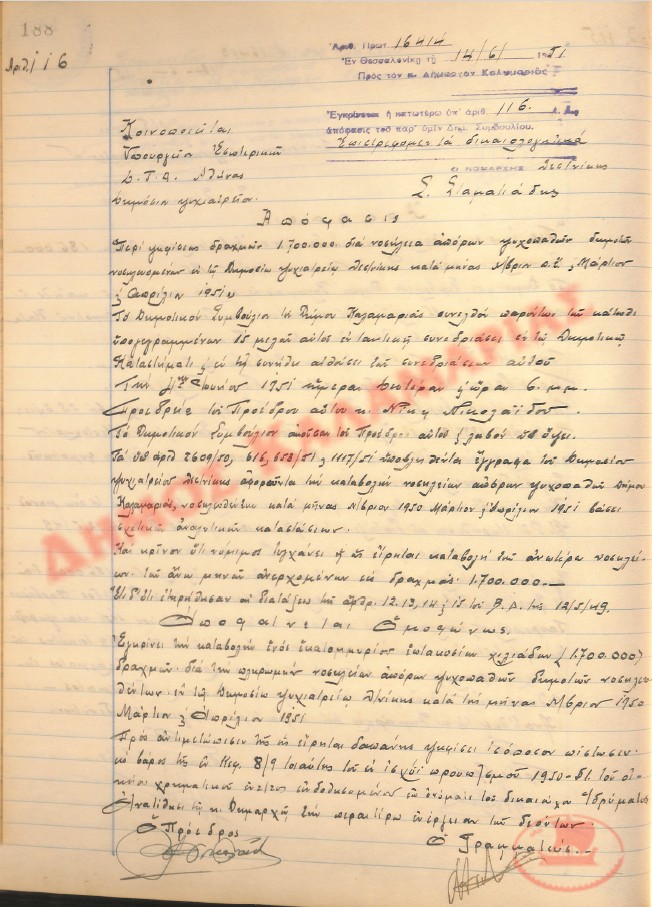 188
Αριθ. 116
Ἀριθ. Πρωτ. 16414
Ἐν Θεσσαλονίκῃ τῇ 14/6/1951
Πρὸς τὸν κ. Δήμαρχον Καλαμαριᾶς
Ἐγκρίνεται ἡ κατωτέρω ὑπ' ἀριθ. 116
ἀπόφασις τοῦ παρ' ὑμῖν Δημ. Συμβουλίου.
Ἐπιστρεφομένα τὰ δικαιολογητικά
Ο ΝΟΜΑΡΧΗΣ Θεσ/νίκης
Σ. Σιαμαλιάδης
Κοινοποιεῖται
Ὑπουργεῖον Ἐσωτερικῶν
Δ.Τ.Α. Ἀθήνας
Δημόσιον ψυχιατρεῖον.
Ἀπόφασις
Περὶ ψηφίσεως δραχμῶν 1.700.000 διὰ νοσήλεια ἀπόρων ψυχοπαθῶν δημοτῶν
νοσηλευομένων ἐν τῷ Δημοσίῳ ψυχιατρείῳ Θεσ/νίκης κατὰ μῆνας Ν/βριον Μάρτιον
& Ἀπρίλιον 1951
Τὸ Δημοτικὸν Συμβούλιον τοῦ Δήμου Καλαμαριᾶς συνελθὸν παρόντων τῶν κάτωθι
ὑπογεγραμμένων 15 μελῶν αὐτοῦ ἐν τακτικῇ συνεδριάσει ἐν τῷ Δημοτικῷ
Καταστήματι & ἐν τῇ συνήθει αἰθούσῃ τῶν συνεδριάσεων αὐτοῦ
Τὴν 4ην Ἰουνίου 1951 ἡμέραν Δευτέραν & ὥραν 6 μ.μ.
Προεδρίᾳ τοῦ Προέδρου αὐτοῦ κ. Νικολαΐδου.
Τὸ Δημοτικὸν Συμβούλιον ἀκοῦσαν τοῦ Προέδρου αὐτοῦ & λαβὸν ὑπ' ὄψει.
Τὰ ὑπ' ἀριθ. 2609/50, 616, 658/51 & 1117/51 ὑποβληθέντα ἔγγραφα τοῦ Δημοσίου
ψυχιατρείου Θεσ/νίκης ἀφορῶντα τὴν καταβολὴν νοσηλείων ἀπόρων ψυχοπαθῶν Δήμου
Καλαμαριᾶς, νοσηλευθέντων κατὰ μῆνας Ν/βριον 1950 Μάρτιον & Ἀπρίλιον 1951 βάσει
σχετικῶν ἀναλυτικῶν καταστάσεων.
Καὶ κρῖνον ὅτι νόμιμος τυγχάνει ἡ ὡς εἴρηται καταβολὴ τῶν ἀνωτέρω νοσηλεί-
ων τῶν ἄνω μηνῶν ἀνερχομένων εἰς δραχμὰς 1.700.000.—
Ἔτι διότι ἐτηρήθησαν αἱ διατάξεις τῶν ἄρθρ. 12, 13, 14 & 15 τοῦ Β.Δ. τῆς 12/5/49.
Ἀποφαίνεται Ὁμοφώνως.
Ἐγκρίνει τὴν καταβολὴν ἑνὸς ἑκατομμυρίου ἑπτακοσίων χιλιάδων (1.700.000)
δραχμῶν διὰ τὴν πληρωμὴν νοσηλείων ἀπόρων ψυχοπαθῶν δημοτῶν νοσηλευ-
θέντων ἐν τῷ Δημοσίῳ ψυχιατρείῳ Θ/νίκης κατὰ τοὺς μῆνας Ν/βριον 1950
Μάρτιον & Ἀπρίλιον 1951
Πρὸς ἀντιμετώπισιν τῆς ὡς εἴρηται δαπάνης ψηφίζει ἰσόποσον πίστωσιν
εἰς βάρος τῆς ἐν Κεφ. 8/9 τοῦ ἐν ἰσχύϊ προυπ/σμοῦ 1950-51 τοῦ οἰ-
κείου χρηματικοῦ ἐντ/τος ἐκδοθησομένου ἐπ' ὀνόματι τοῦ δικαιούχου Ἱδρύματος
Ἀναθέτει τῷ κ. Δημάρχῳ τὴν περαιτέρω ἐνέργειαν τῶν δεόντων.
Ὁ Πρόεδρος
Ὁ Γραμματεύς.
ΔΗΜΟΣ ΚΑΛΑΜΑΡΙΑΣ